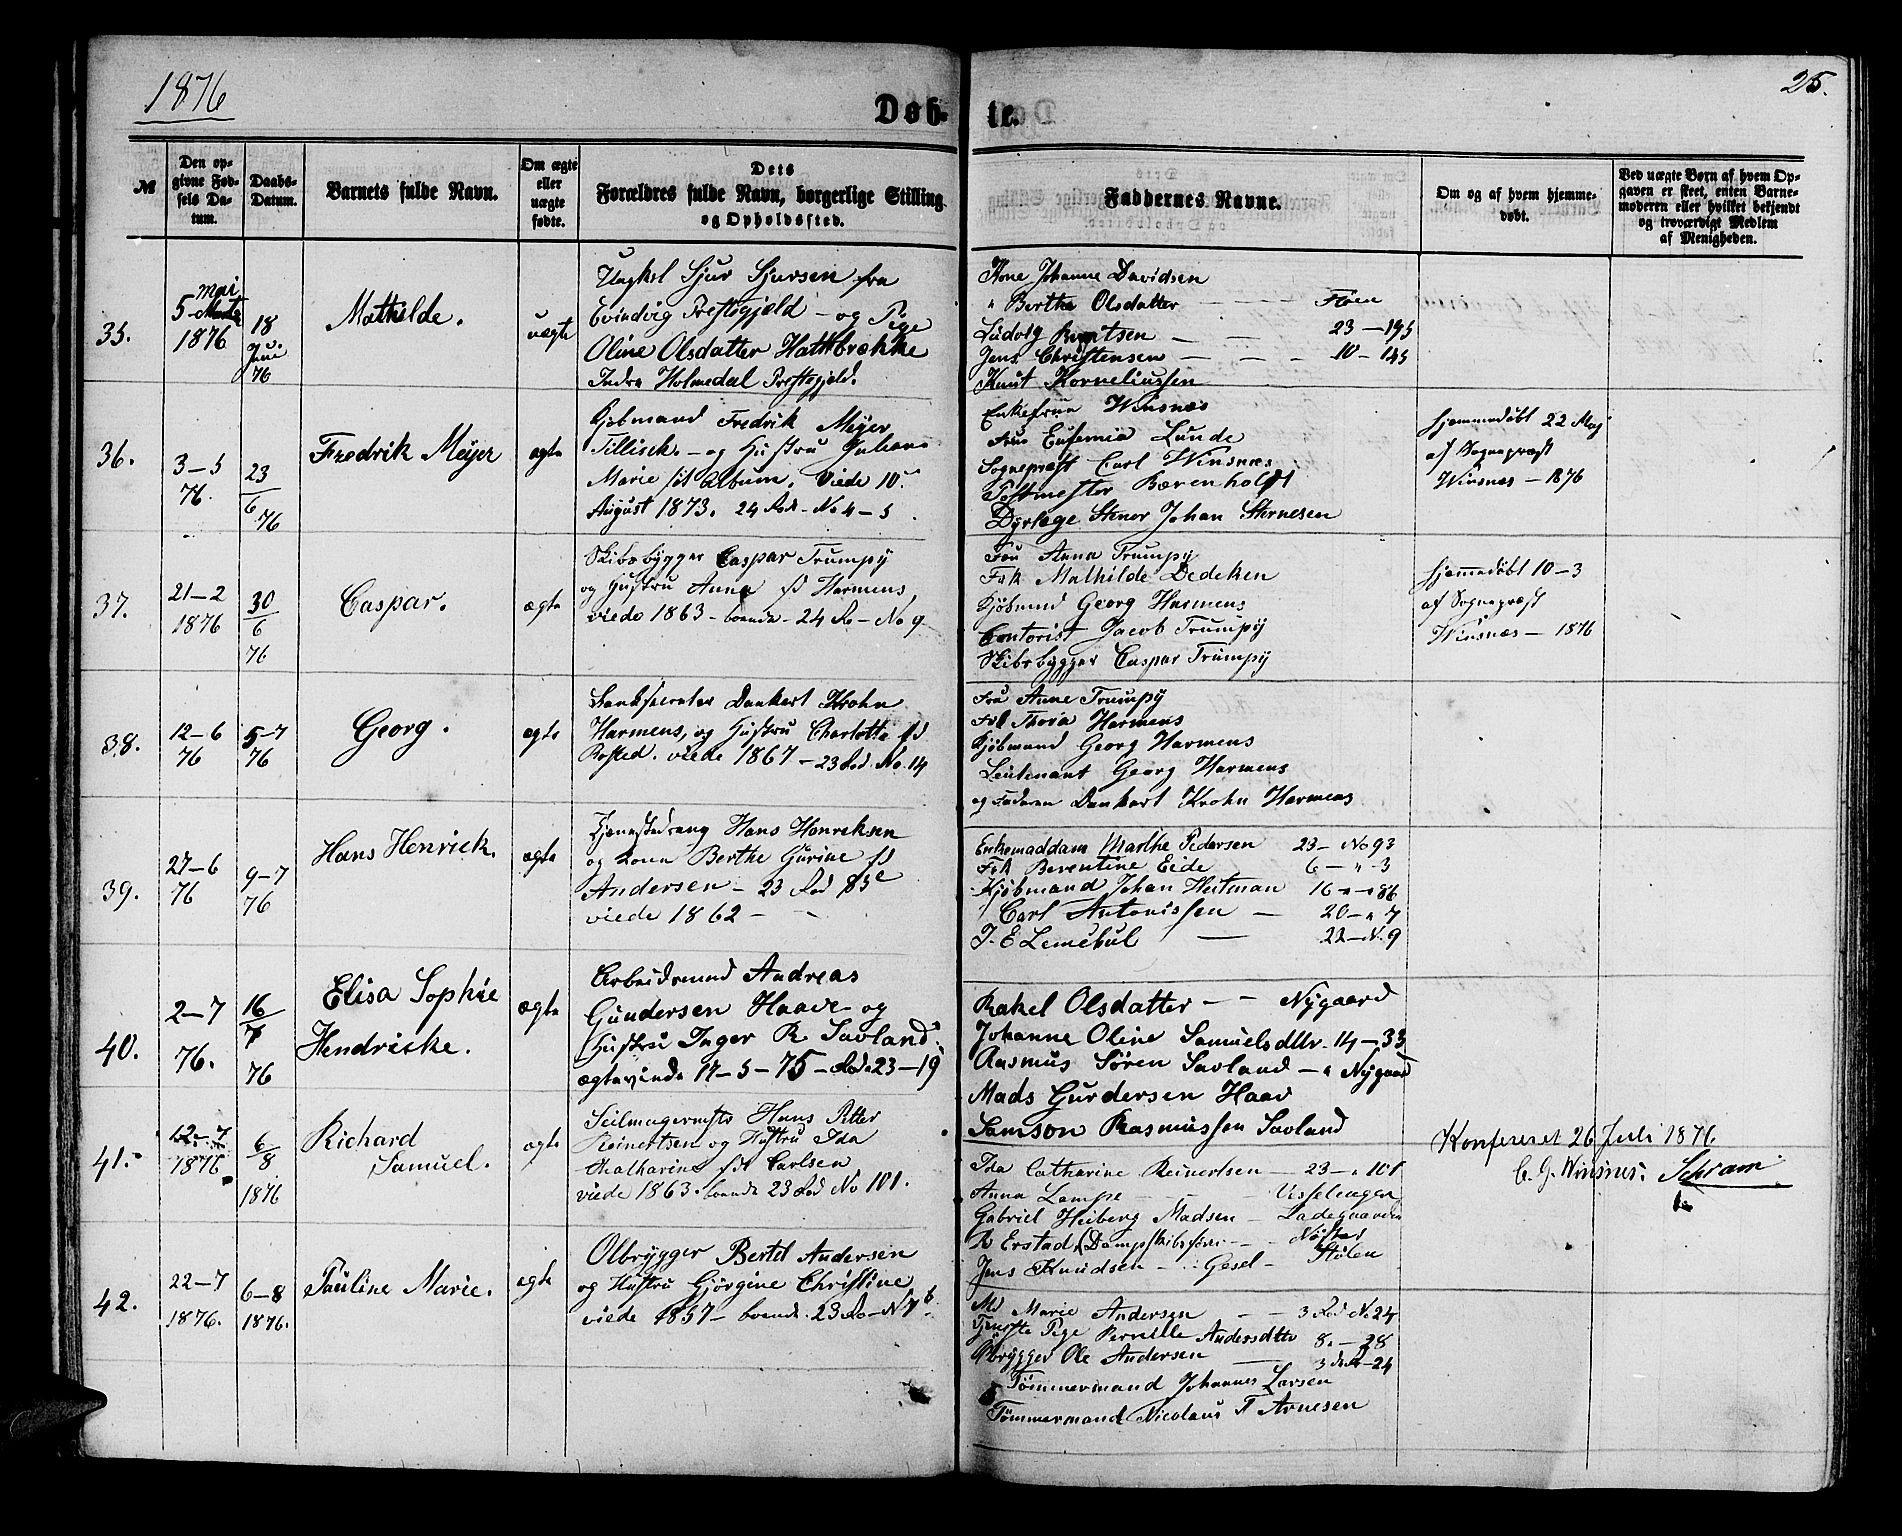 1876
25.
Døb-
te.
№
Den op-
givne Fød-
sels Da-
tum.
Daabs-
Datum.
Barnets fulde Navn.
Om ægte
eller
uægte
fødte.
Dets
Forældres fulde Navn, borgerlige Stilling
og Opholdssted.
Faddernes Navne.
Om og af hvem hjemme-
døbt.
Ved uægte Børn af hvem Op-
gaven er skeet, enten Barne-
moderen eller hvilket bekjendt
og troværdigt Medlem
af Menigheden.
35.
Mai
5
1876
18
Juni
76
Mathilde.
uægte
Ungkel Sjur Sjursen fra
Evindvig Prestegjeld - og Pige
Oline Olsdatter Hattbrække
Indre Holmedal Prestegjeld.
Kone Johanne Davidsen
" Berthe Olsdatter - - - Fløen
Ludvig Berntsen - - 23 - 195
Jens Christensen - - - 10 - 145
Knut Korneliussen
36.
3-5
76.
23
6 76
Fredrik Meyer
ægte
Kjøbmand Fredrik Meyer
Tillisch - og Hustru Juliane
Marie fød Album. Viede 10.
August 1873. 24 Rod - No 4-5
Enkefrue Winsnæs
Frue Eufemia Lunde
Sogneprest Carl Winsnæs
Postmester Bærenholdt
Dyrlæge Stener Johan Stenersen
hjemmedøbt 22 Maj
af Sogneprest
Winsnæs - 1876
37.
21-2
1876
30
6
76
Caspar.
ægte
Skibsbygger Caspar Trumpy
og Hustru Anna fd Harmens,
viede 1863 - boende - 24 Ro - No 9
Fru Anna Trumpy
Frk Mathilde Dedeken
Kjøbmnd Georg Harmens
Contorist Jacob Trumpy
Skibsbygger Caspar Trumpy
hjemmedøbt 10-3
af Sogneprest
Winsnæs - 1876
38.
12-6
76
5-7
76
Georg.
ægte
Dankert Krohn
Harmens, og Hustru Charlotte fd
Rosted. viede 1867 - 23 Rod. No. 14
Fru Anne Trumpy
Frk Thora Harmens
Kjøbmand Georg Harmens
Leutenant Georg Harmens
og Faderen Dankert Krohn Harmens
39.
27-6
76
9-7
76
Hans Henrick.
ægte
Tjenestedreng Hans Henriksen
og Kone Berthe Gurine fd
Andersen - 23 Rod 83e
viede 1862 -
Enkemaddam Marthe Pedersen 23 - No 93
Frk Berentine Eide 6 - " - 3
Kjøbmand Johan Heitman 16 - " - 86
Carl Antonissen - 20 - " 7
J. E Lemekul - 22 - N. 9
40.
2-7
76.
16
7
76
Elisa Sophie
Hendricke.
ægte
Arbeidsmnd Andreas
Gundersen Haave og
Hustru Inger R Savland
ægteviede 17-5-75 - Rode 23-19
Rakel Olsdatter - - Nygaard
Johanne Oline Samuelsdttr. 14 - 33
Rasmus Søren Savland - " Nygaard
Mads Gundersen Haav
Samson Rasmussen Savland
41.
12-7
1876
6
8
1876
Richard
Samuel.
ægte
Seilmagermestr Hans Petter
Reinertsen og Hustru Ida
Chatharine fd Carlsen
viede 1863. boende 23 Rod No 101.
Ida Catharine Reinertsen - 23 - " 101
Anna Lampe - - Vesselengen
Gabriel Heiberg Madsen - Ladegaarden
R Erstad (Dampskibsfører - - Nøstet
Jens Knudsen - - Gesel - Stølen
Konfereret 26 Juli 1876
C. G. Winsnes. Schram
42.
22-7
1876.
6-8
1876.
Pauline Marie.
ægte
Ølbrygger Bertel Andersen
og Hustru Gjørgine Christine
viede 1857 - boende. 23 Ro - N 7 b
Md Marie Andersen - - 3 Rod No 24
Tjeneste Pige Pernille Andersdttr 8. - 28
Ølbrygger Ole Andersen - 3 Rode - 24
Tømmermand Johannes Larsen
Tømmermand Nicolaus T Arnesen